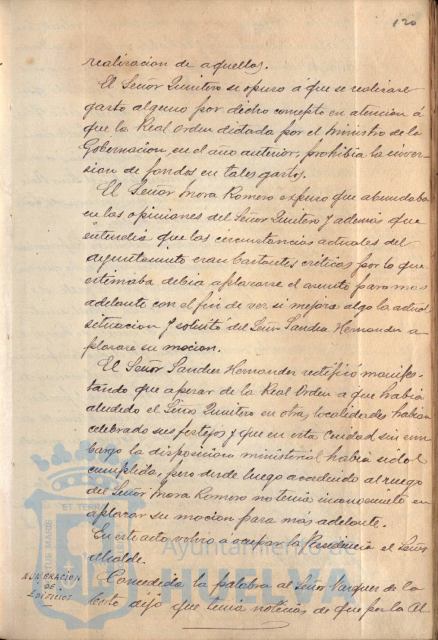 120
realización de aquellos.
El Señor Quintero se opuso a que se realizase
gasto alguno por dicho concepto en atencion á
que la Real Orden dictada por el Ministro de la
Gobernacion, en el año anterior, prohibia la inver-
sion de fondos en tales gastos.
El Señor Mora Romero expuso que abundaba
en las opiniones del Señor Quintero y además que
entendia que las circunstancias actuales del
ayuntamiento eran bastantes criticas por lo que
estimaba debia aplazarse el asunto para más
adelante con el fin de ver si mejora algo la actual
situacion y solicitó del Señor Sanchez Hernandez a-
plazase su mocion.
El Señor Sanchez Hernandez rectificó manifes-
tando que apesar de la Real Orden a que habia
aludido el Señor Quintero en otras localidades habian
celebrado sus festejos y que en esta Ciudad sin em-
bargo la disposicion ministerial habia sido
cumplida, pero desde luego accediendo al ruego
del Señor Mora Romero no tenia inconveniente en
aplazar su mocion para más adelante.
En este acto volvió a ocupar la Presidencia el Señor
Alcalde.
NUMERACION
DE
EDIFICIOS
Concedida la palabra al Señor Vazquez de la
Corte dijo que tenia noticias de que por la Al
Ayuntamiento de
HUELVA